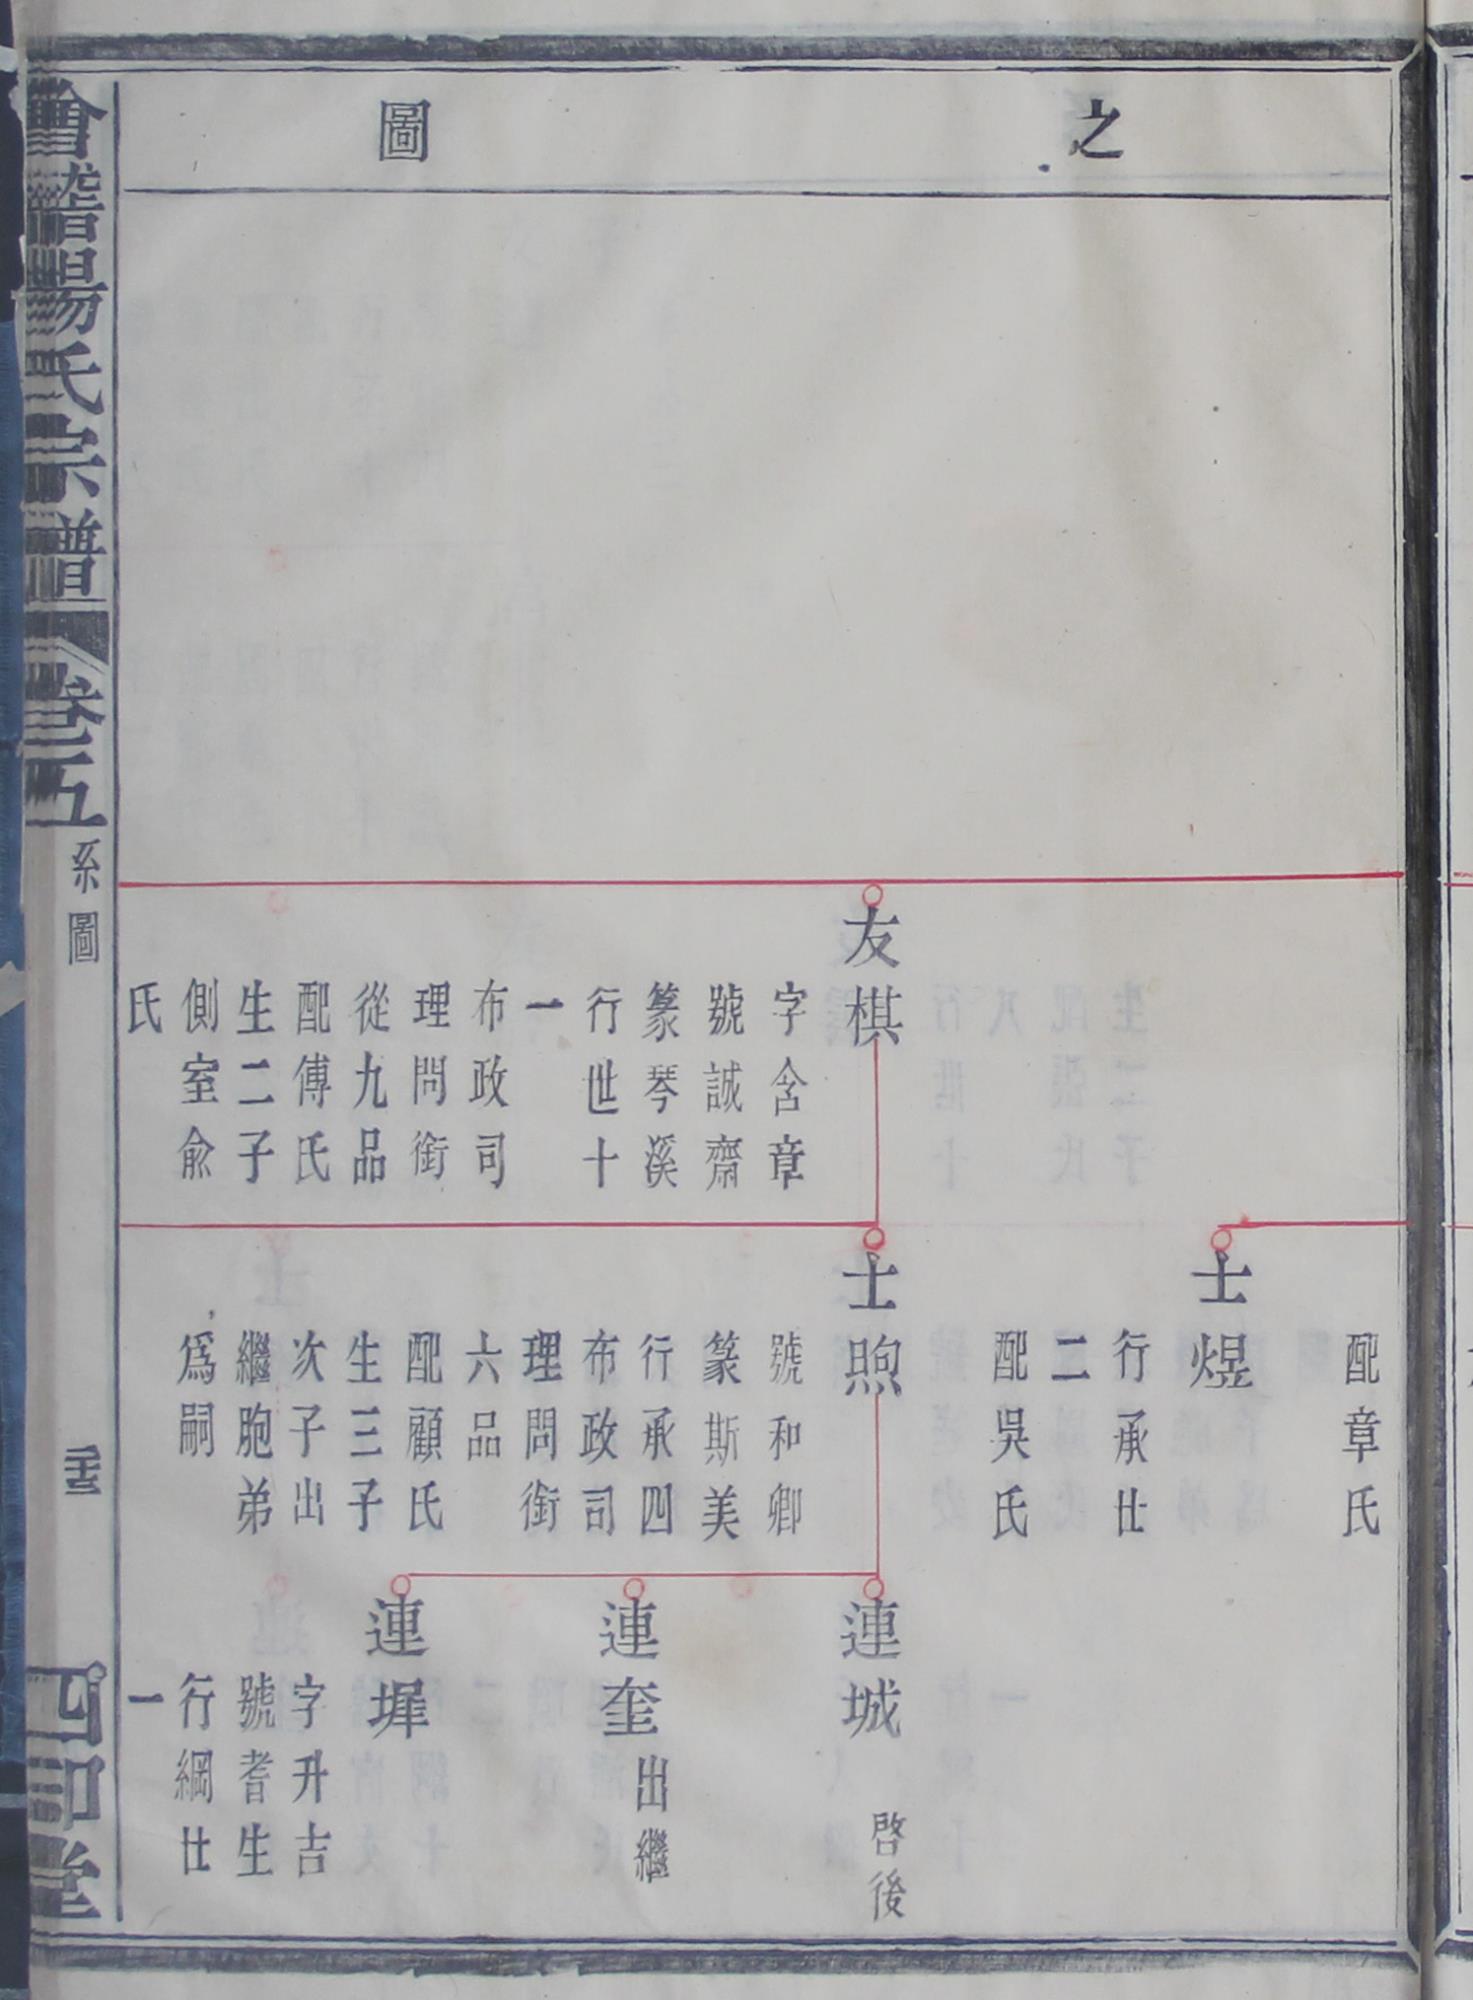 之圖
友棋
字含章
號誠齋
篆琴溪
行世十
一
布政司
理問銜
從九品
配傅氏
生二子
側室兪
氏
配章氏
士煜
行承仕
二
配吳氏
士煦
號和卿
篆斯美
行承四
布政司
理問銜
六品
配顧氏
生三子
次子出
繼胞弟
爲嗣
連城
啓後
連奎
出繼
連墀
字升吉
號耆生
行綱仕
一
會稽陽氏宗譜
卷五
系圖
四印堂